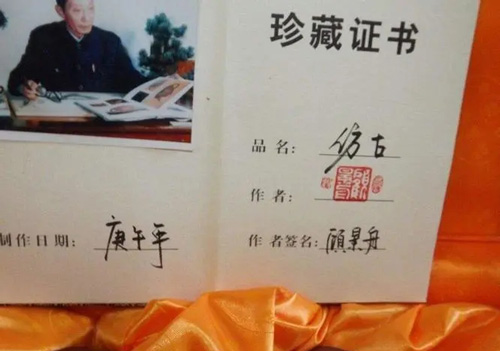 珍藏证书
品名: 仿古
作者:
作者签名: 顾景舟
制作日期: 庚午年